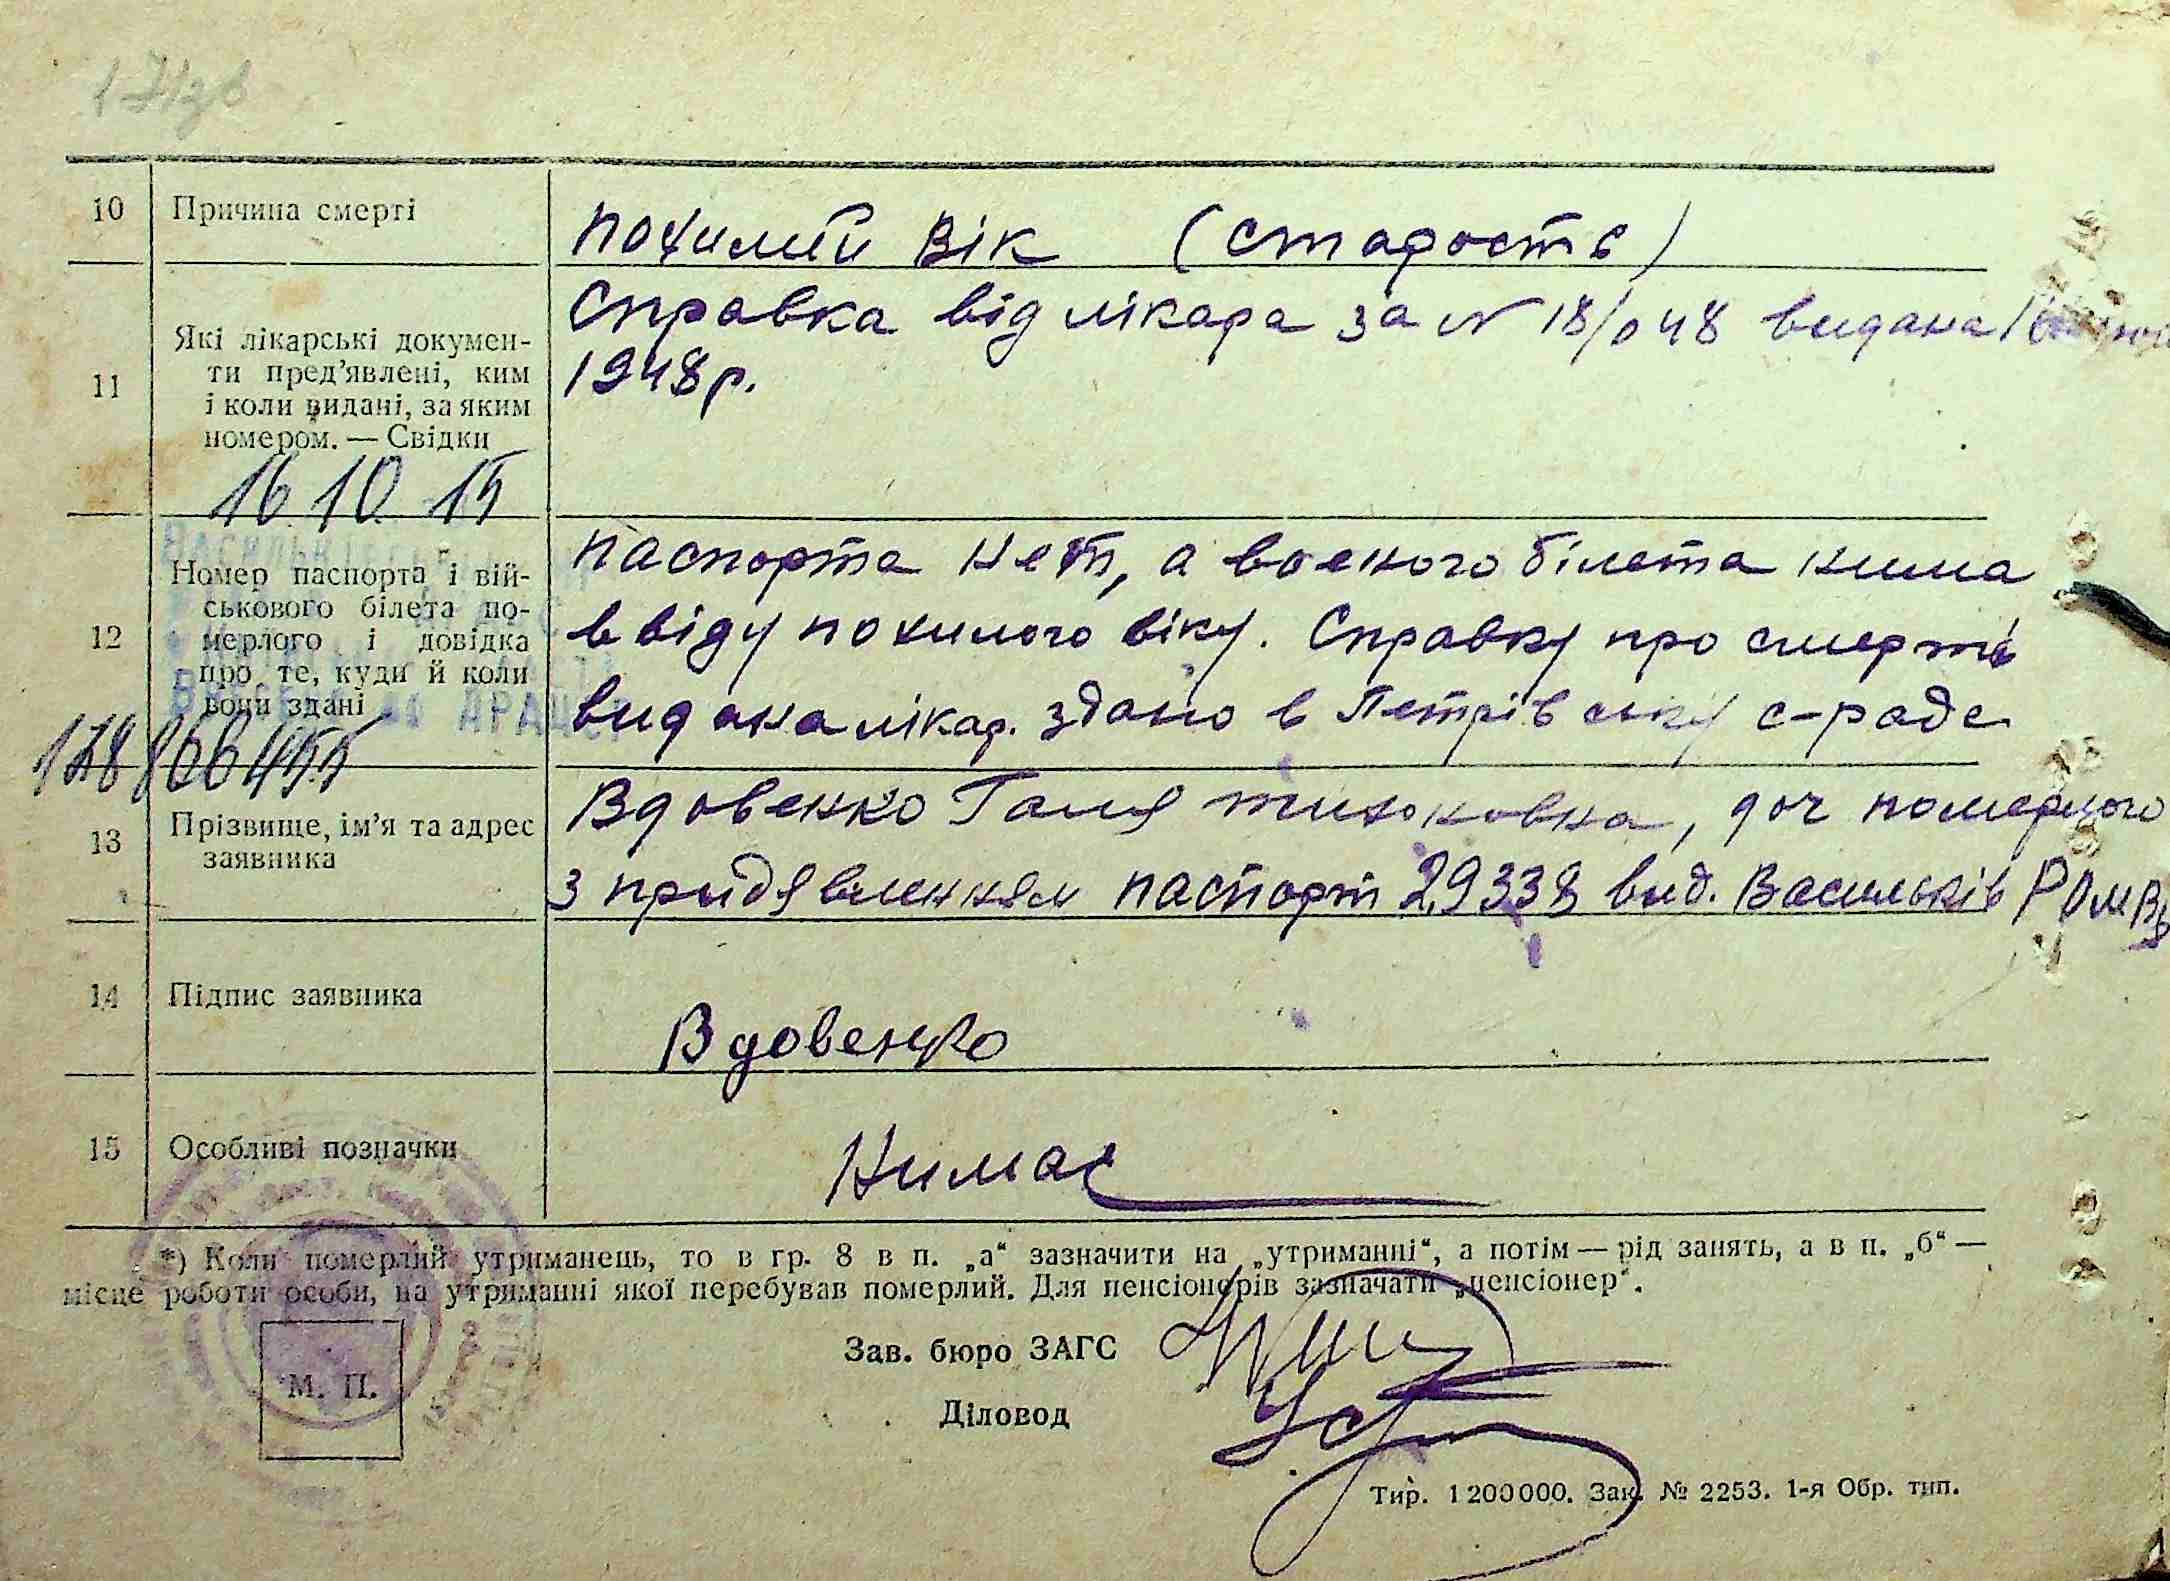 10 Причина смерті
похилий вік (старость)
11 Які лікарські докумен-
ти пред'явлені, ким
і коли видані, за яким
номером. — Свідки
Справка від лікара за N 18/048 видана
1948р.
16 10 15
12 Номер паспорта і вій-
ськового білета по-
мерлого і довідка
про те, куди й коли
вони здані
паспорта нет, а военого білета нима
ввіду похилого віку. Справку про смерть
видана лікар. здано в Петрівську с-раде
13 Прізвище, ім'я та адрес
заявника
Вдовенко Галя тихоновна, доч померлого
з придявленням паспорт 29338 вид. Васильків
14 Підпис заявника
Вдовенко
15 Особливі позначки
Нимає
*) Коли померлий утриманець, то в гр. 8 в п. „а“ зазначити на „утриманні“, а потім — рід занять, а в п. „б“ —
місце роботи особи, на утриманні якої перебував померлий. Для пенсіонерів зазначати „пенсіонер“.
Зав. бюро ЗАГС
М. П.
Діловод
Тир. 1200000. Зак. № 2253. 1-я Обр. тип.